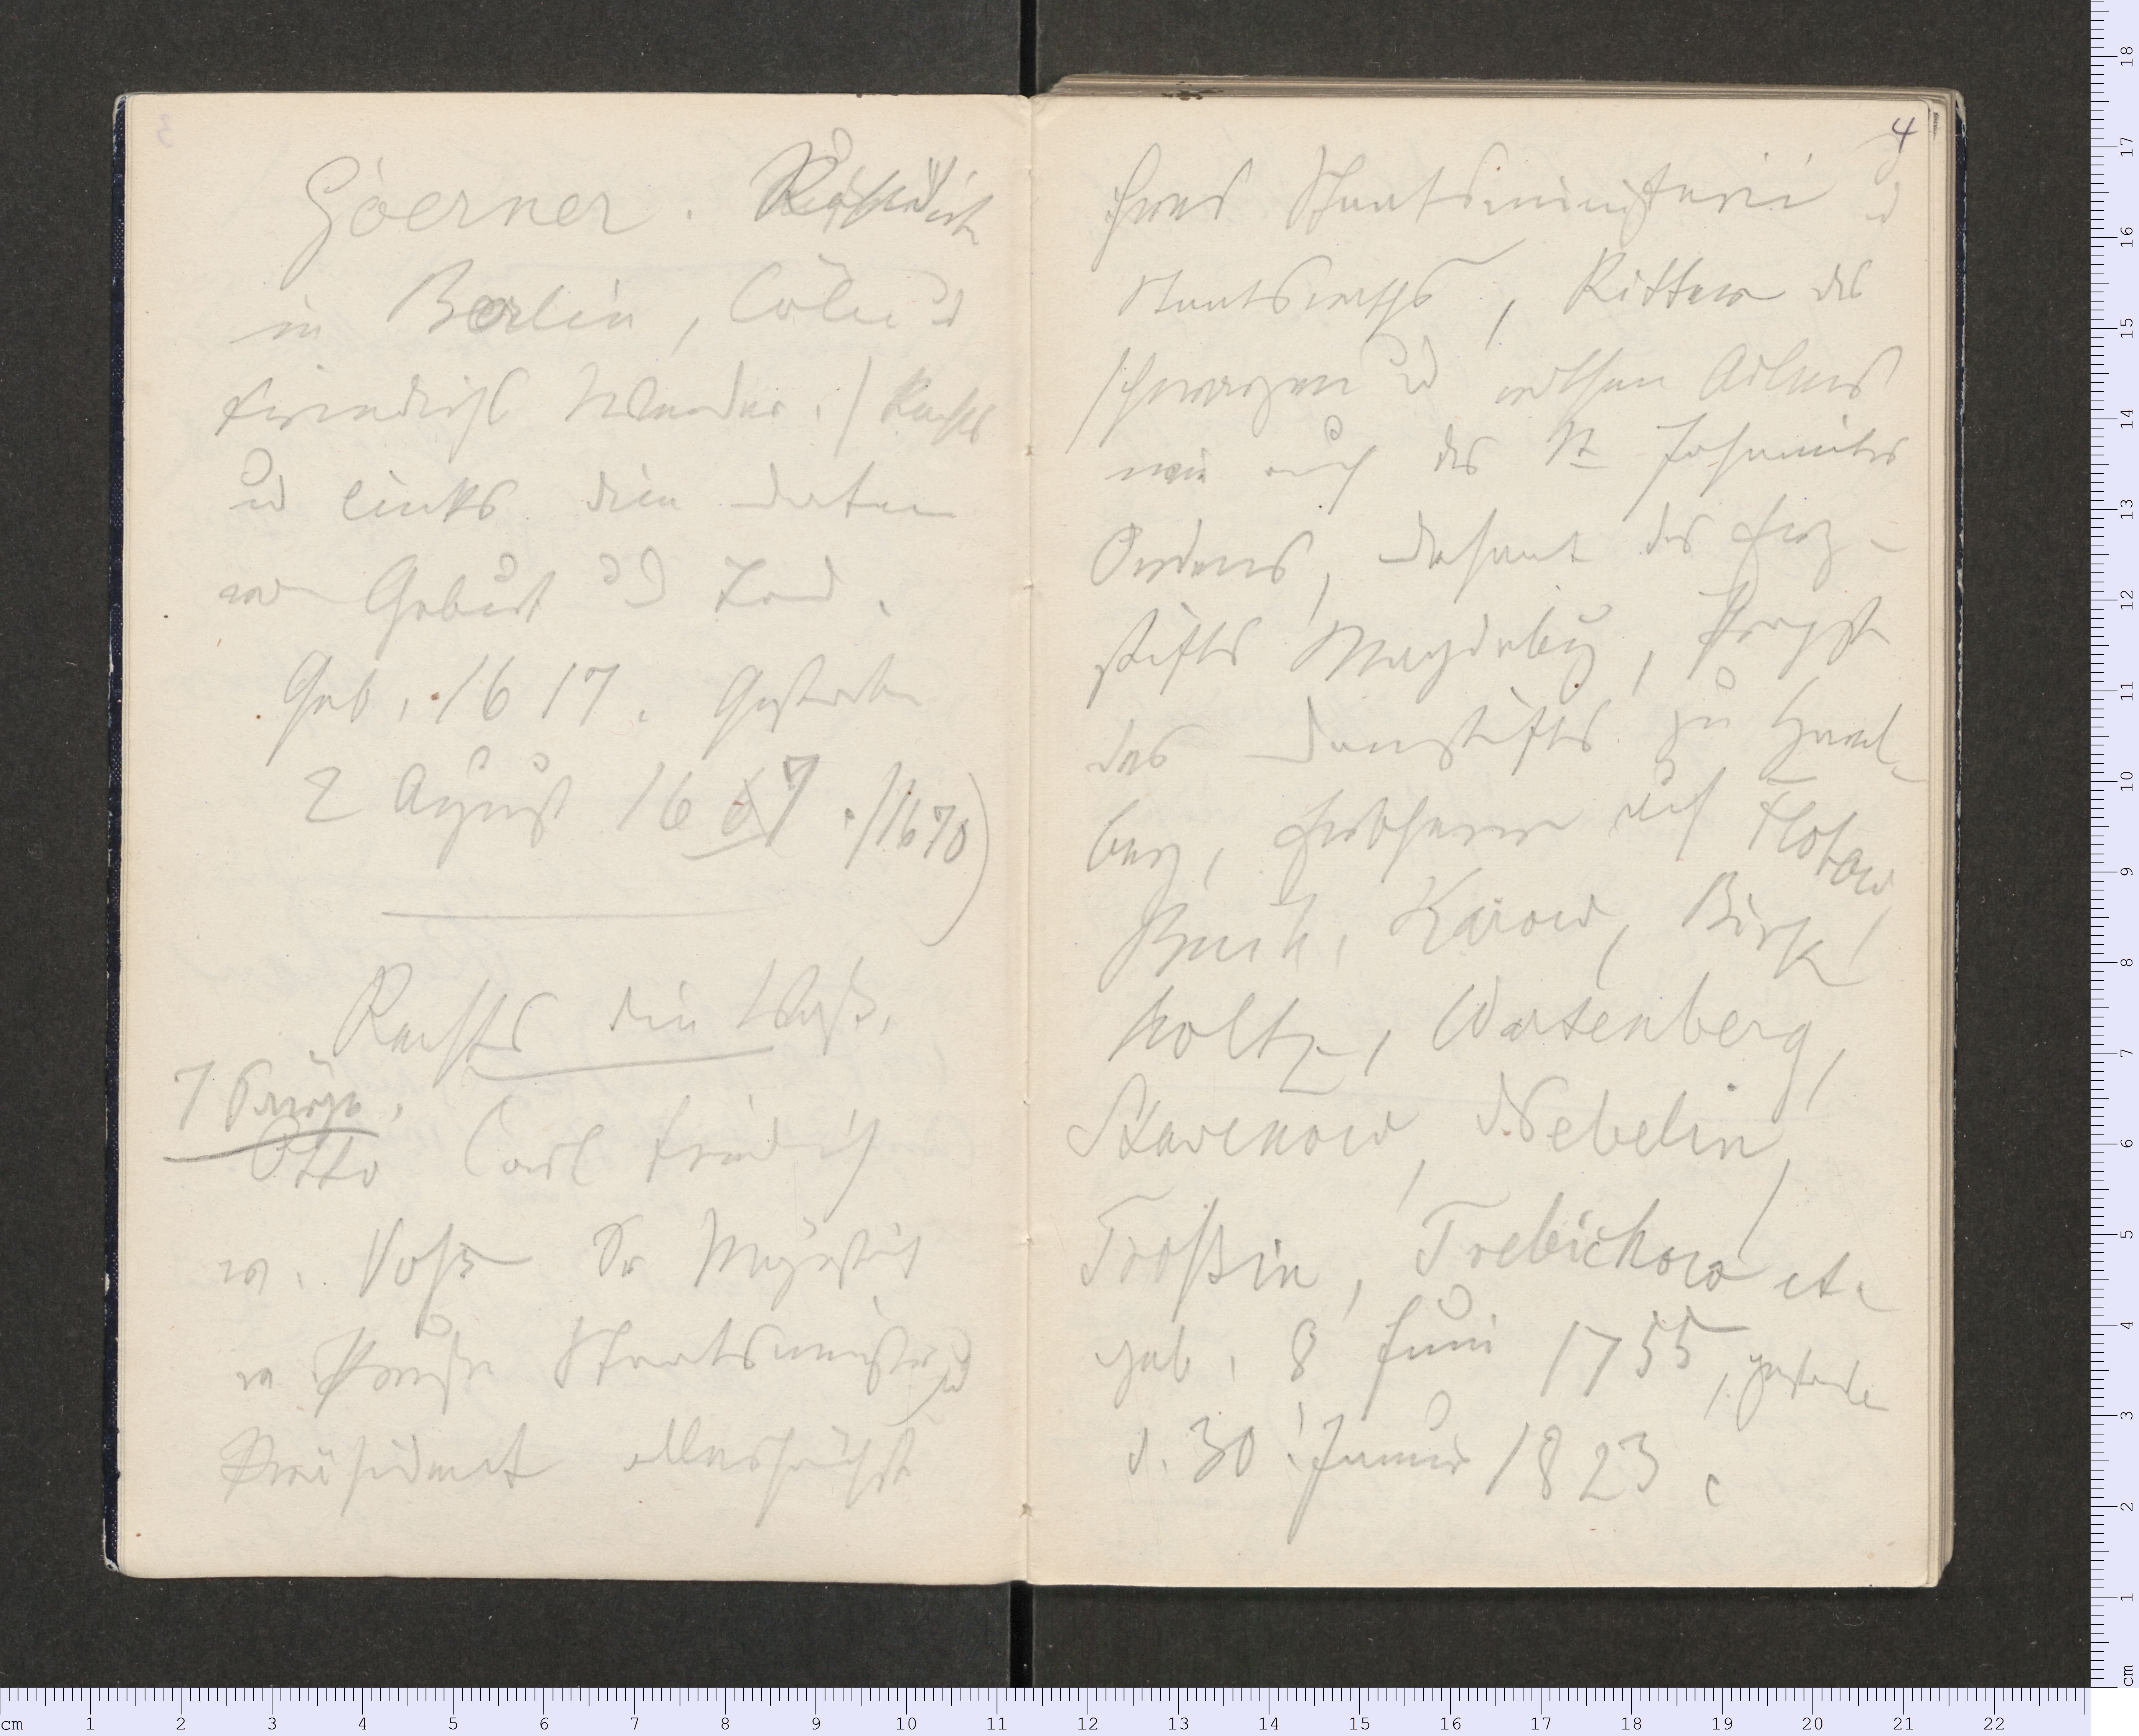 Goerner.
in Berlin, Cöln u
Friedrichs Werder. / Rechts
und links die Daten
von Geburt und Tod.
Geb. 1617. Gestorben
2 August 1667. (1670)
Rechts die Voß.
7 Särge.
Otto Carl Friedrich
v. Voss Sr Majestät
v Preußen Staatsminister u
Präsident allerhöchst
4
Ihres Staatsministerii u
Staatsraths, Ritter des
schwarzen und rothen Adlers
wie auch des St Johanniter
Ordens, Dechant des Erz-
stifts Magdeburg, Propst
des Domstifts zu Havel-
berg, Erbherr auf Flotow
Buch, Karow, Birk
holtz, Wartenberg,
Stavenow, Nebelin,
Troßin, Trebichow etc
geb. 8 Juni 1755, gestorben
d. 30 Januar 1823.